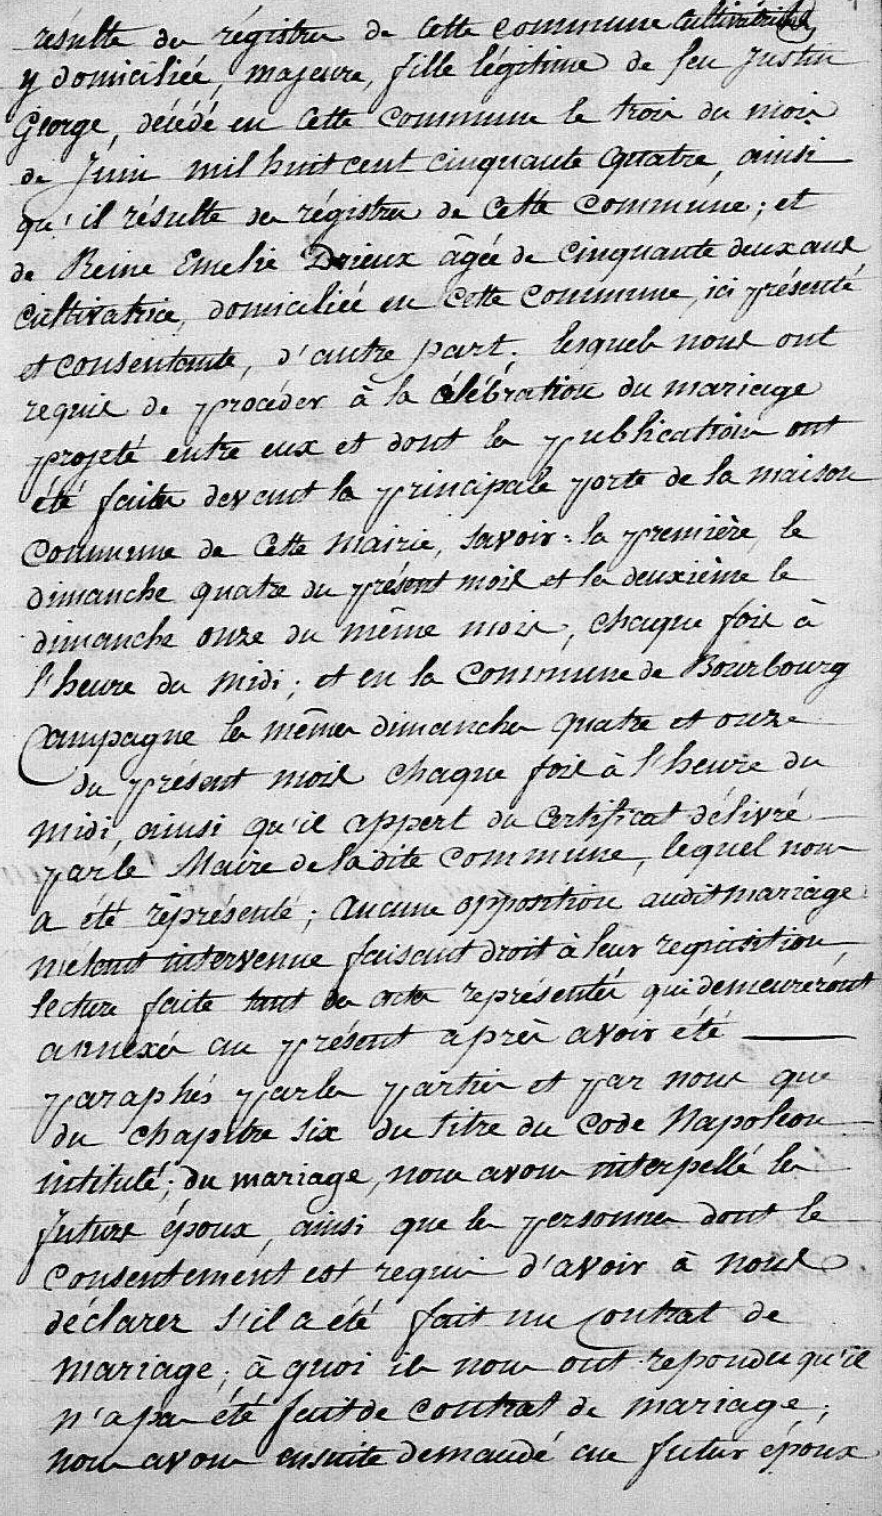 résulte du régistre de cette commune cultivatrice
y domiciliée, majeure, fille légitime de feu Justin
George, décédé en cette commune le trois du mois
de Juin mil huit cent cinquante quatre, ainsi
qu'il résulte des régistres de cette commune; et
de Reine Emelie Drieux âgée de cinquante deux ans
cultivatrice, domiciliée en cette commune, ici présente
et consentante, d'autre part. lesquels nous ont
requis de procéder à la célébration du mariage
projeté entre eux et dont les publications ont
été faites devant la principale porte de la maison
commune de cette mairie, savoir: la première, le
dimanche quatre du présent mois et la deuxième le
dimanche onze du même mois, chaque fois à
l'heure du midi; et en la commune de Bourbourg
Campagne les mêmes dimanches quatre et onze
du présent mois chaque fois à l'heure du
midi, ainsi qu'il appert du certificat délivré
par le Maire de la dite commune, lequel nous
a été réprésenté; aucune opposition audit mariage
n'étant intervenue faisant droit à leur requisition
lecture faite tant des actes représentés qui demeureront
annexés au présent après avoir été
paraphés par les parties et par nous que
du chapitre six du titre du Code Napoléon
intitulé; du mariage, nous avons interpellé les
futurs époux, ainsi que les personnes dont le
consentement est requis d'avoir à nous
déclarer s'il a été fait un contrat de
mariage; à quoi ils nous ont repondu qu'il
n'a pas été fait de contrat de mariage;
nous avons ensuite demandé au futur époux